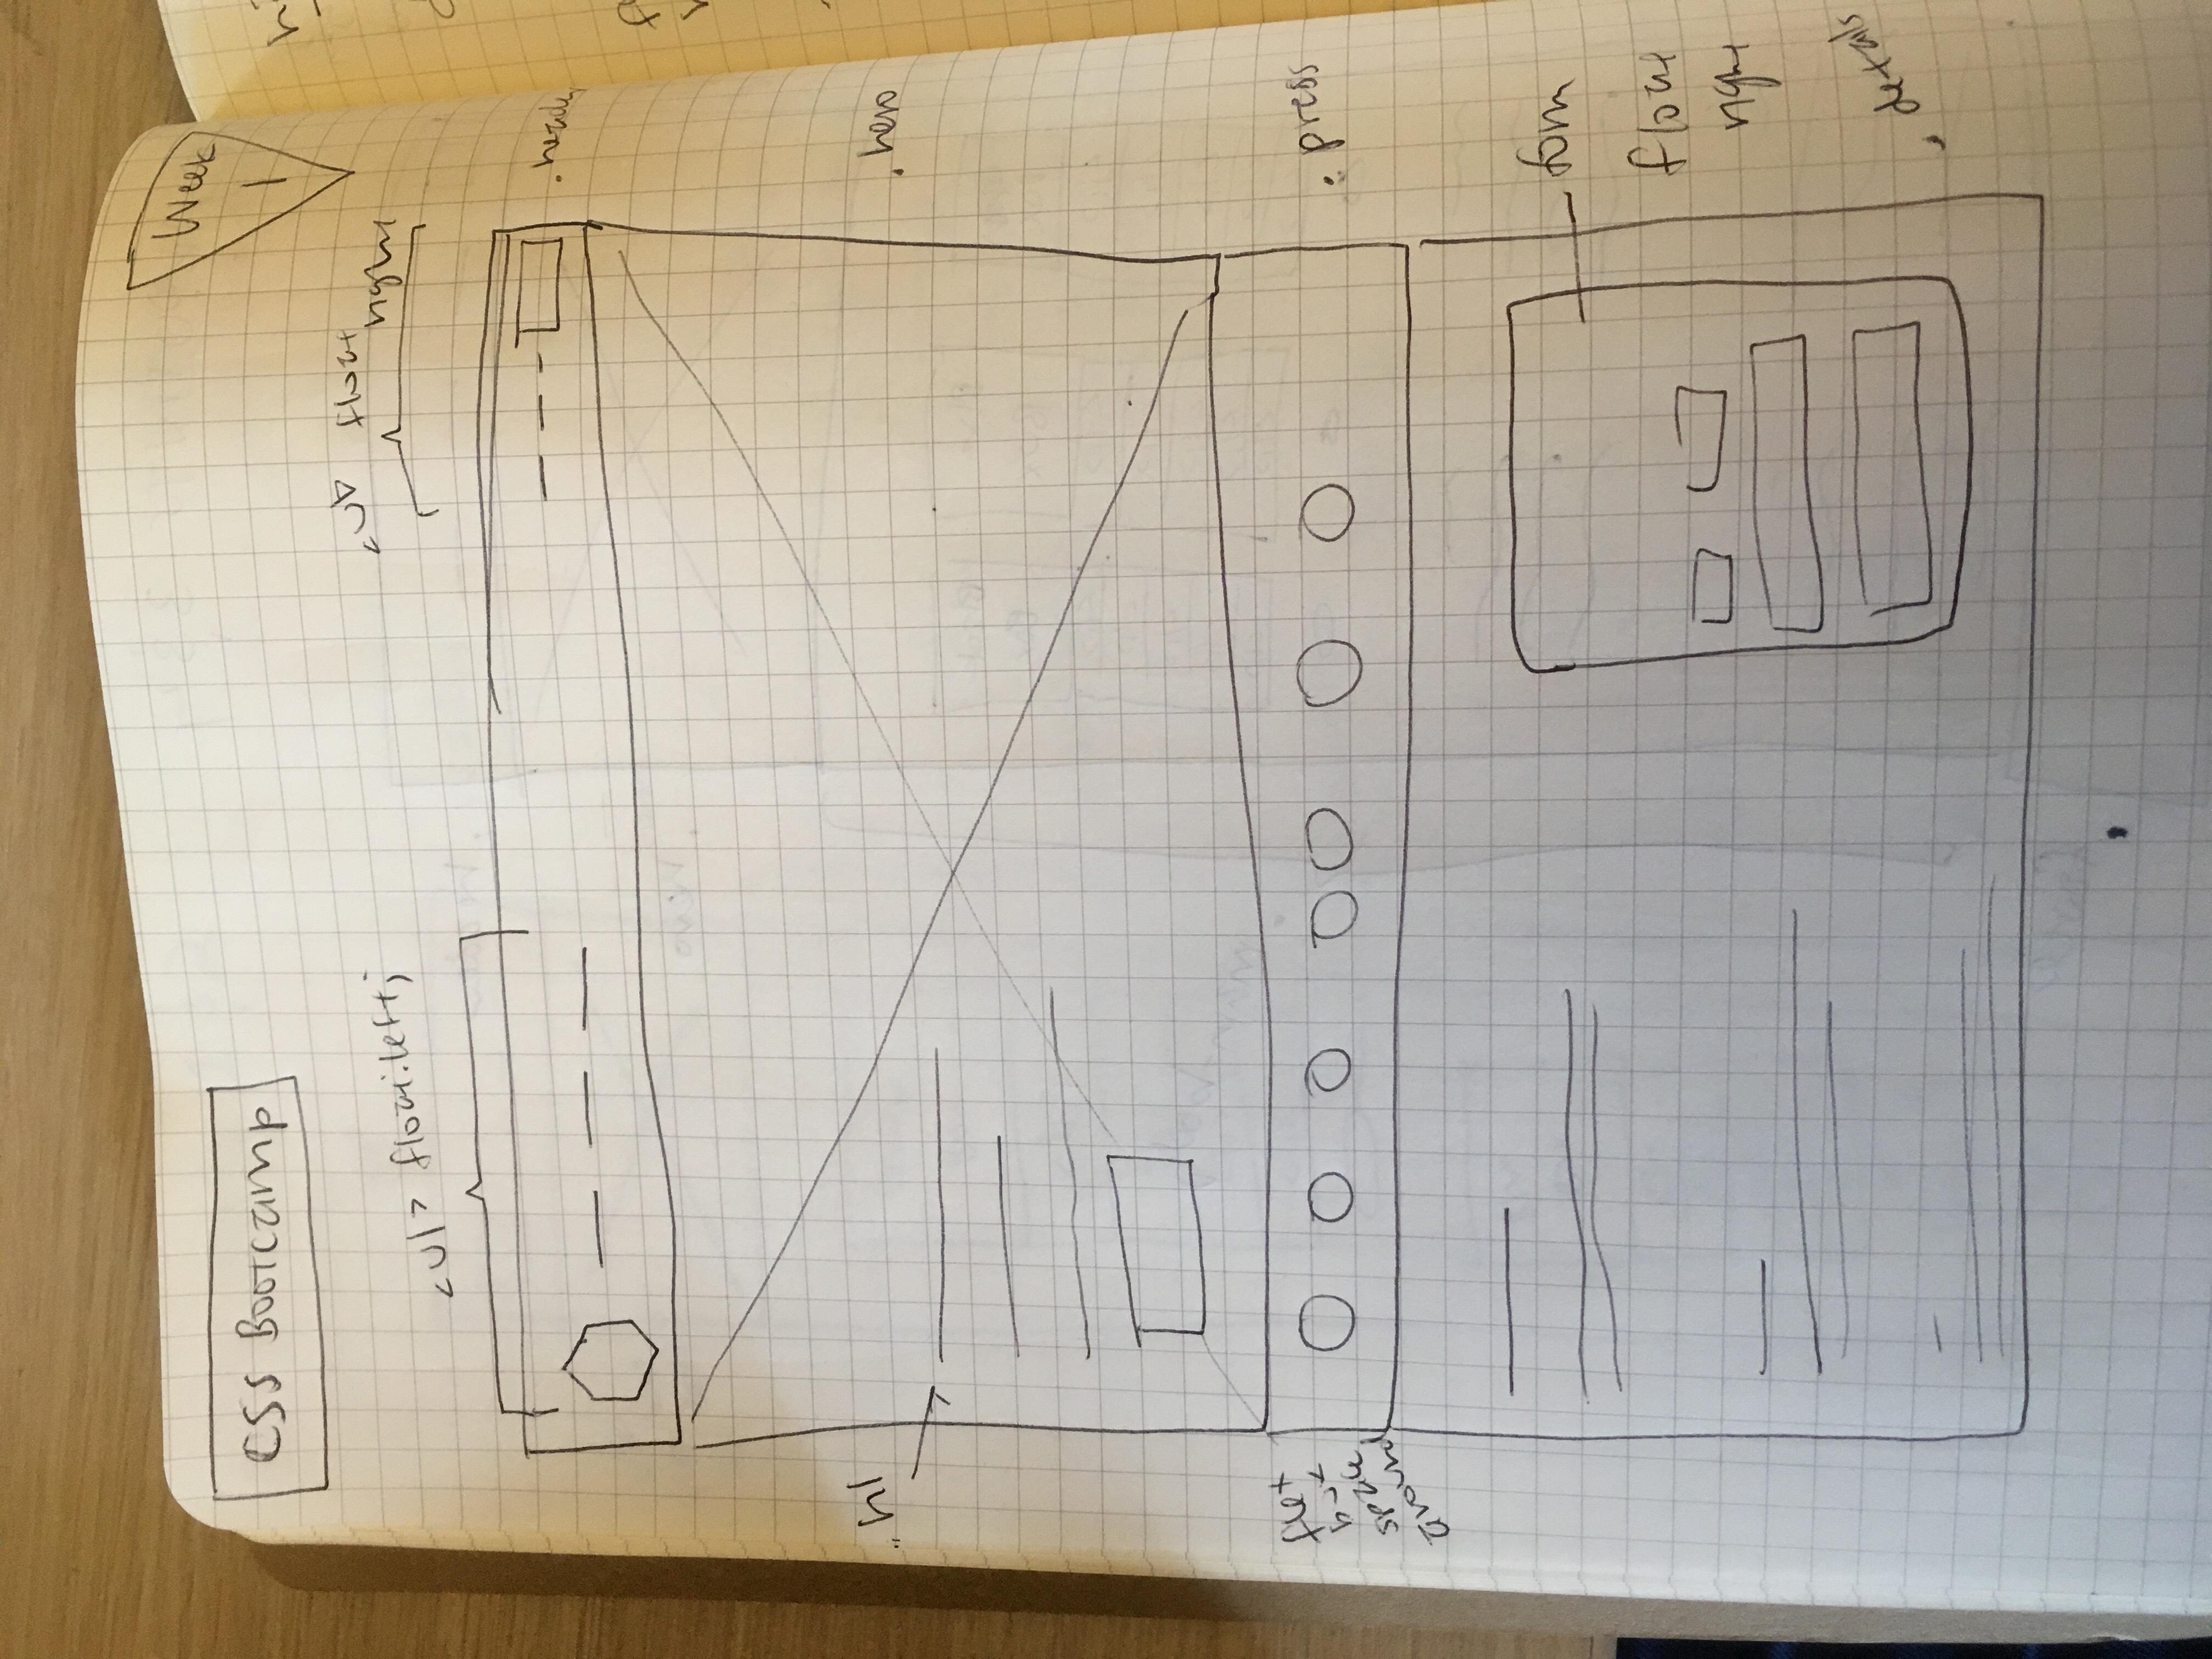 CSS Bootcamp
Week
1
<ul> float:left;
<ul> float
right
.header
.h1
.hero
flex
box
space
around
.press
form
float
right
.details